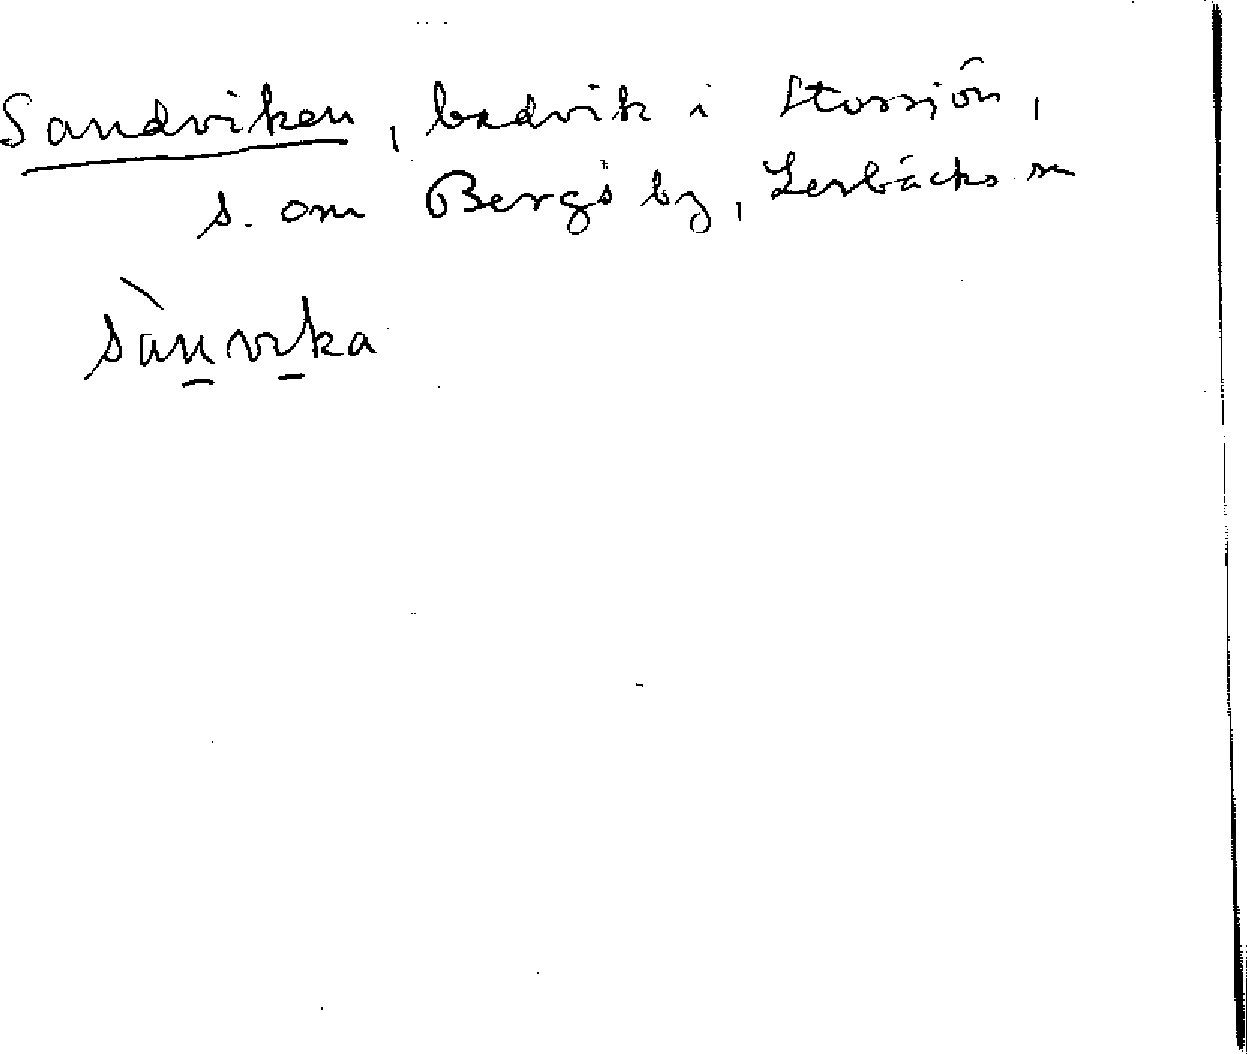 Sandviken, badvik i Storsjön,
s. om Bergs by, Lerbäcks sn
sànvika